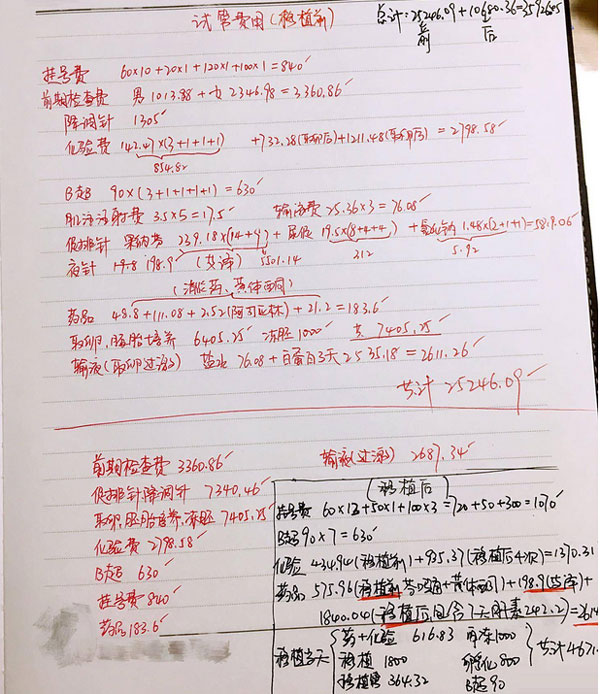 试管费用(移植前)
总计:25246.09+10680.36=35926.45
前 后
挂号费 60×10+20×1+120×1+100×1=840
前期检查费 男1013.88+女2346.98=3360.86
降调针 1305
化验费 142.47×(3+1+1+1) +732.28(取卵后)+1211.48(取卵后)=2798.58
854.82
B超 90×(3+1+1+1+1)=630
肌注注射费 3.5×5=17.5 输液费 25.36×3=76.08
促排针 果纳芬 239.18×(14+9)+尿促 19.5×(8+4+4)+氯化钠 1.48×(2+1+1)=5819.06
夜针 19.8 198.9 (艾泽) 5501.14 312 5.92
(消炎药、黄体酮)
药品 48.8+111.08+2.52(阿司匹林)+21.2=183.6
取卵、胚胎培养 6405.25 冻胚1000 共 7405.25
输液(取卵过激) 盐水 76.08+白蛋白3天 2535.18=2611.26
共计 25246.09
前期检查费 3360.86
输液(过激) 2687.34
促排针降调针 7340.46
取卵、胚胎培养、冻胚 7405.25
化验费 2798.58
B超 630
挂号费 840
药品 183.6
移植后
挂号费 60×12+50×1+100×3=720+50+300=1070
B超 90×7=630
化验 434.94(移植前)+935.37(移植后4次)=1370.31
药品 575.96(移植前 +黄体酮)+198.9(达泽)+
1840.04(移植后,包含7天肝素242.2)=2614
移植当天 药+化验 616.83 冻1000 共计4671
移植 1800 孵化800
移植 364.32 B超90